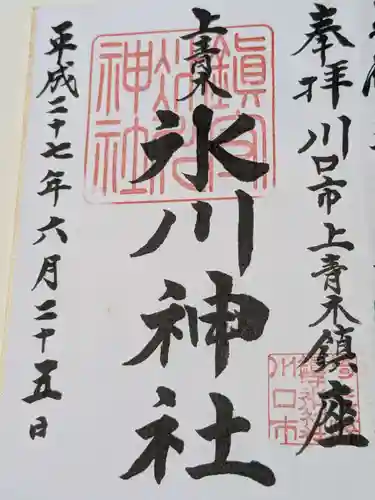 奉拝 川口市上青木鎮座
上青木
氷川神社
平成二十七年六月二十五日
鎮守
氷川
神社
川口市